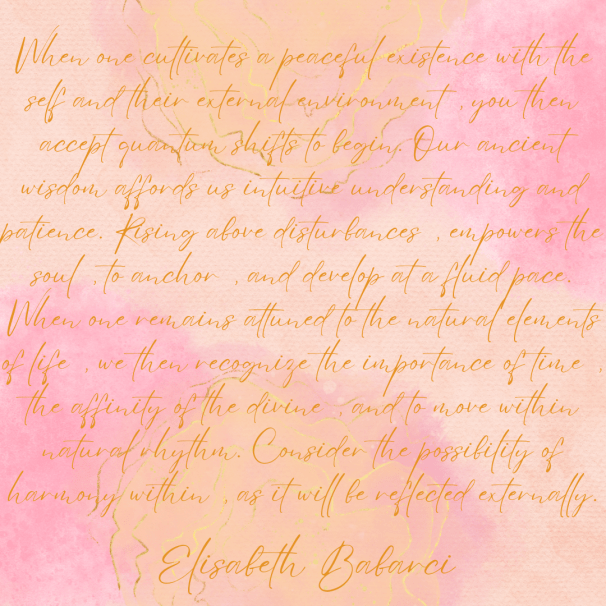 When one cultivates a peaceful existence with the
self and their external environment , you then
accept quantum shifts to begin. Our ancient
wisdom affords us intuitive understanding and
patience. Rising above disturbances , empowers the
soul , to anchor , and develop at a fluid pace.
When one remains attuned to the natural elements
of life , we then recognize the importance of time ,
the affinity of the divine , and to move within
natural rhythm. Consider the possibility of
harmony within , as it will be reflected externally.
Elisabeth Babarci